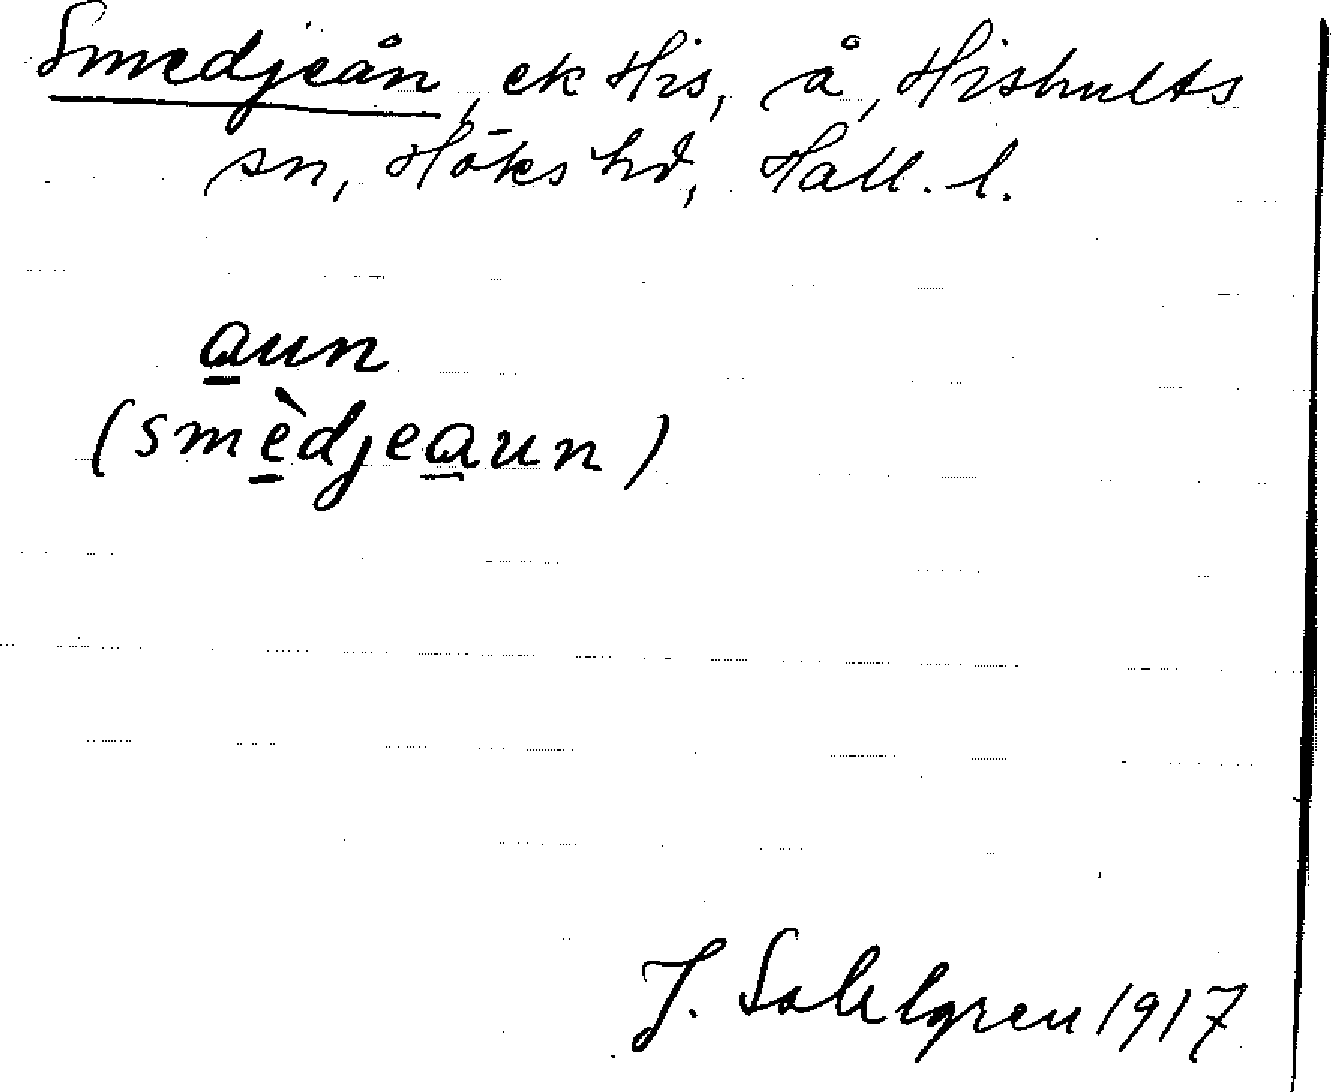 Smedjeån, ek His, å, Hishults
sn, Höks hd, Hall. l.
aun
(smèdjeaun)
J. Sahlgren 1917